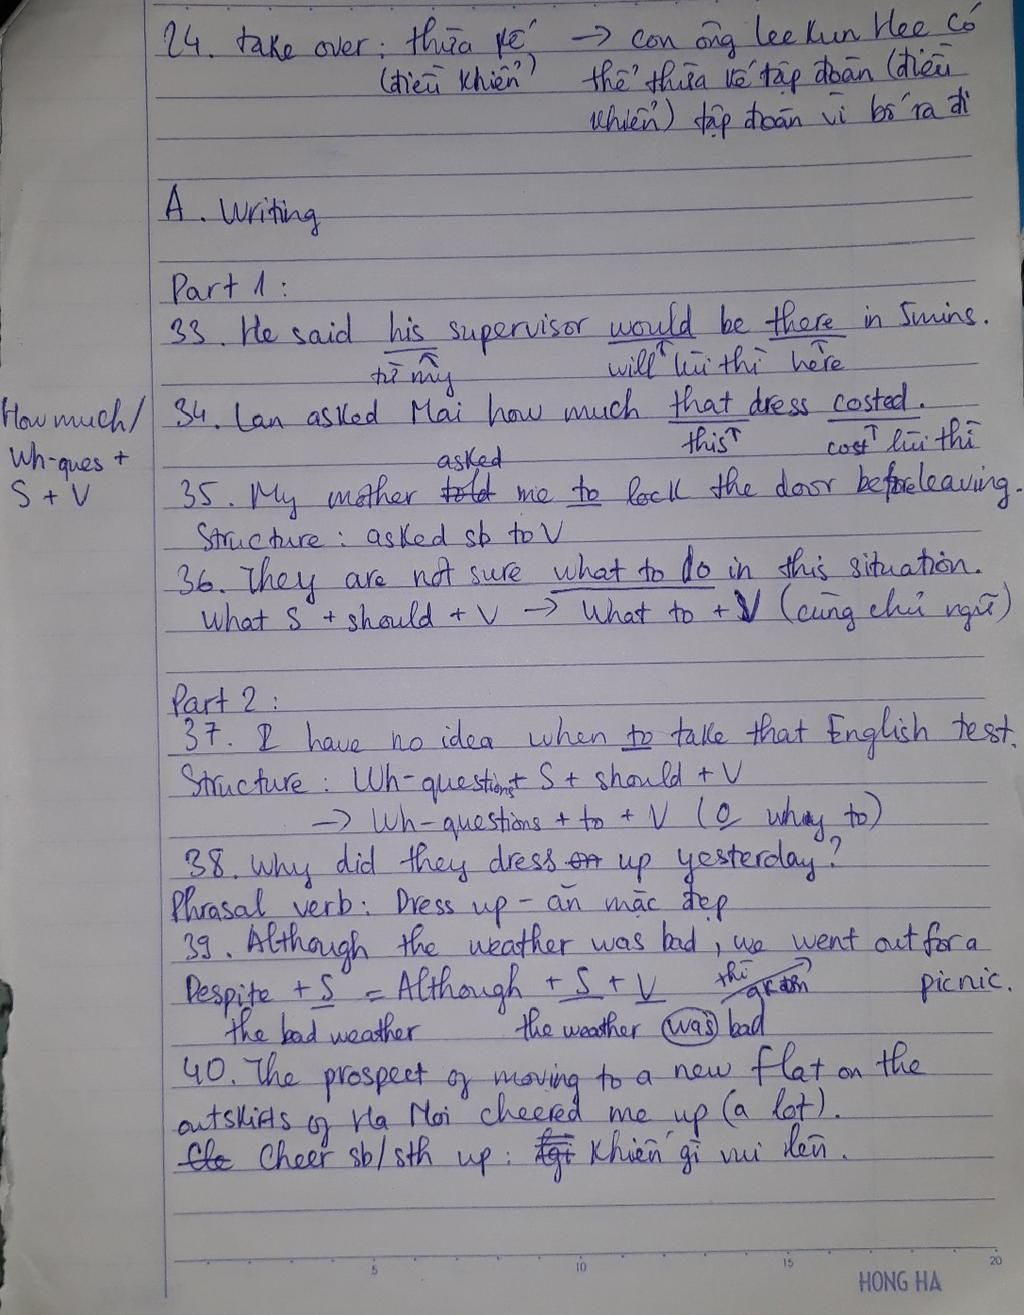 24. take over: thừa kế → con ông Lee Kun Hee có
(điều khiển) thể thừa kế tập đoàn (điều
khiển) tập đoàn vì bố ra đi
A. Writing
Part 1:
33. He said his supervisor would be there in 5mins.
từ my will↑ lùi thì here
34. Lan asked Mai how much that dress costed.
this↑ cost↑ lùi thì
How much/
Wh-ques +
S + V
asked
35. My mother told me to lock the door before leaving.
Structure: asked sb to V
36. They are not sure what to do in this situation.
What S + should + V → What to + V (cùng chủ ngữ)
Part 2:
37. I have no idea when to take that English test.
Structure: Wh-questions + S + should + V
→ Wh-questions + to + V (0 why to)
38. Why did they dress on up yesterday?
Phrasal verb: Dress up - ăn mặc đẹp
39. Although the weather was bad, we went out for a
picnic.
Despite + S = Although + S + V thì
the bad weather the weather was bad
40. The prospect of moving to a new flat on the
outskirts of Ha Noi cheered me up (a lot).
Che Cheer sb/sth up: khiến gì vui lên.
5 10 15 20
HONG HA